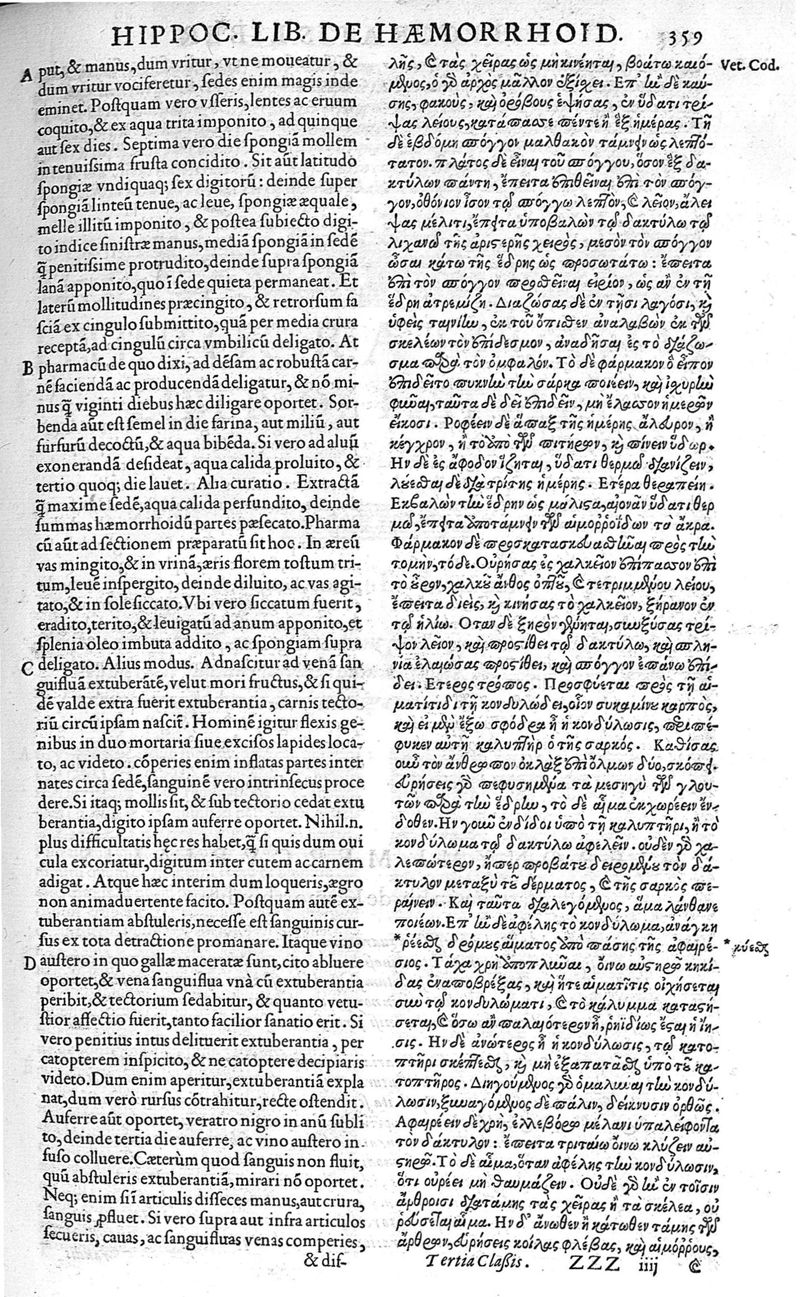 HIPPOC. LIB. DE HÆMORRHOID. 359
A put, & manus, dum vritur, vt ne moueatur, &
dum vritur vociferetur, sedes enim magis inde
eminet. Postquam vero vsseris, lentes ac eruum
coquito, & ex aqua trita imponito, ad quinque
aut sex dies. Septima vero die spongiã mollem
in tenuissima frusta concidito. Sit aũt latitudo
spongiæ vndiquaq; sex digitorũ: deinde super
spongiã linteũ tenue, ac leue, spongiæ æquale,
melle illitũ imponito, & postea subiecto digi-
to indice sinistræ manus, mediã spongiã in sedẽ
q̃ penitissime protrudito, deinde supra spongiã
lanã apponito, quo ĩ sede quieta permaneat. Et
laterũ mollitudines præcingito, & retrorsum fa
sciã ex cingulo submittito, quã per media crura
receptã, ad cingulũ circa vmbilicũ deligato. At
B pharmacũ de quo dixi, ad dẽsam ac robustã car-
nẽ faciendã ac producendã deligatur, & nõ mi-
nus q̃ viginti diebus hæc diligare oportet. Sor-
benda aũt est semel in die farina, aut miliũ, aut
furfurũ decoctũ, & aqua bibẽda. Si vero ad aluũ
exonerandã desideat, aqua calida proluito, &
tertio quoq; die lauet. Alia curatio. Extractã
q̃ maxime sedẽ, aqua calida perfundito, deinde
summas hæmorrhoidũ partes præsecato. Pharma
cũ aũt ad sectionem præparatũ sit hoc. In æreũ
vas mingito, & in vrinã, æris florem tostum tri-
tum, leuẽ inspergito, deinde diluito, ac vas agi-
tato, & in sole siccato. Vbi vero siccatum fuerit,
eradito, terito, & leuigatũ ad anum apponito, et
splenia oleo imbuta addito, ac spongiam supra
C deligato. Alius modus. Adnascitur ad venã san
guifluã extuberãtẽ, velut mori fructus, & si qui-
dẽ valde extra fuerit extuberantia, carnis tecto-
riũ circũ ipsam nascit̃. Hominẽ igitur flexis ge-
nibus in duo mortaria siue excisos lapides loca-
to, ac videto. cõperies enim inflatas partes inter
nates circa sedẽ, sanguinẽ vero intrinsecus proce
dere. Si itaq; mollis sit, & sub tectorio cedat extu
berantia, digito ipsam auferre oportet. Nihil.n.
plus difficultatis hęc res habet, q̃ si quis dum oui
cula excoriatur, digitum inter cutem ac carnem
adigat. Atque hæc interim dum loqueris, ægro
non animaduertente facito. Postquam autẽ ex-
tuberantiam abstuleris, necesse est sanguinis cur-
sus ex tota detractione promanare. Itaque vino
D austero in quo gallæ maceratæ sunt, cito abluere
oportet, & vena sanguiflua vnà cũ extuberantia
peribit, & tectorium sedabitur, & quanto vetu-
stior affectio fuerit, tanto facilior sanatio erit. Si
vero penitius intus delituerit extuberantia, per
catopterem inspicito, & ne catoptere decipiaris
videto. Dum enim aperitur, extuberantiã expla
nat, dum verò rursus cõtrahitur, recte ostendit.
Auferre aũt oportet, veratro nigro in anũ subli
to, deinde tertia die auferre, ac vino austero in-
fuso colluere. Cæterùm quod sanguis non fluit,
quũ abstuleris extuberantiã, mirari nõ oportet.
Neq; enim si ĩ articulis disseces manus, aut crura,
sanguis ꝓfluet. Si vero supra aut infra articulos
secueris, cauas, ac sanguifluas venas comperies,
& dis-
λῆς, & τὰς χεῖρας ὡς μὴ κινέηται, βοάτω καιό- Vet. Cod.
μενος, ὁ γὰρ ἀρχὸς μᾶλλον ἐξίχει. Ἐπ' ἢν δὲ καύ-
σῃς, φακοὺς, καὶ ὀρόβους ἑψήσας, ἐν ὕδατι τρί-
ψας λείους, κατάπασσε πέντε ἢ ἓξ ἡμέρας. Τῇ
δὲ ἑβδόμῃ σπόγγον μαλθακὸν τάμνειν ὡς λεπτό-
τατον. πλάτος δὲ εἶναι τοῦ σπόγγου, ὅσον ἓξ δα-
κτύλων πάντη, ἔπειτα ἐπιθεῖναι ἐπὶ τὸν σπόγ-
γον, ὀθόνιον ἴσον τῷ σπόγγῳ λεπτὸν, & λεῖον, ἀλεί
ψας μέλιτι, ἔπειτα ὑποβαλὼν τῷ δακτύλῳ τῷ
λιχανῷ τῆς ἀριστερῆς χειρὸς, μέσον τὸν σπόγγον
ὦσαι κάτω τῆς ἕδρης ὡς προσωτάτω: ἔπειτα
ἐπὶ τὸν σπόγγον προσθεῖναι εἰρίον, ὡς ἂν ἐν τῇ
ἕδρῃ ἀτρεμίζῃ. Διαζώσας δὲ ἐν τῇσι λαγόσι, καὶ
ὑφεὶς ταινίην, ἐκ τοῦ ὄπισθεν ἀναλαβὼν ἐκ τῶν
σκελέων τὸν ἐπίδεσμον, ἀναδῆσαι ἐς τὸ διάζω-
σμα παρὰ τὸν ὀμφαλόν. Τὸ δὲ φάρμακον ὃ εἶπον
ἐπιδεῖτο πυκνὴν τὴν σάρκα ποιέειν, καὶ ἰσχυρὴν
φῦναι, ταῦτα δὲ δεῖ ἐπιδεῖν, μὴ ἔλασσον ἡμερῶν
εἴκοσι. Ῥοφέειν δὲ ἅπαξ τῆς ἡμέρης ἄλευρον, ἢ
κέγχρον, ἢ τὸ ἀπὸ πιτήρων, καὶ πίνειν ὕδωρ.
Ἢν δὲ ἐς ἄφοδον ἵζηται, ὕδατι θερμῷ διανίζειν,
λούεσθαι δὲ διὰ τρίτης ἡμέρης. Ἑτέρα θεραπείη.
Ἐκβαλὼν τὴν ἕδρην ὡς μάλιστα, αἰονᾷν ὕδατι θερ
μῷ, ἔπειτα ἀποτάμνειν τῶν αἱμοῤῥοΐδων τὰ ἄκρα.
Φάρμακον δὲ προσκατασκευασθῆναι πρὸς τὴν
τομὴν, τόδε. Οὐρήσας ἐς χαλκεῖον ἐπίπασον ἐπὶ
τὸ οὖρον, χαλκοῦ ἄνθος ὀπτοῦ, & τετριμμένου λείου,
ἔπειτα διεὶς, καὶ κινήσας τὸ χαλκεῖον, ξήρανον ἐν
τῷ ἡλίῳ. Ὅταν δὲ ξηρὸν γένηται, συνξύσας τρί-
ψον λεῖον, καὶ προστίθει τῷ δακτύλῳ, καὶ σπλη-
νία ἐλαιώσας προστίθει, καὶ σπόγγον ἐπάνω ἐπί-
δει. Ἕτερος τρόπος. Προσφύεται πρὸς τῇ αἱ-
ματίτιδι τῇ κονδυλώδει, οἷον συκαμίνου καρπὸς,
καὶ εἰ μὲν ἔξω σφόδρα ἢ ἡ κονδύλωσις, περιπέ-
φυκεν αὐτῇ καλυπτὴρ ὁ τῆς σαρκός. Καθίσας
οὖν τὸν ἄνθρωπον ὀκλὰξ ἐπὶ ὅλμων δύο, σκόπει.
εὑρήσεις γὰρ πεφυσημένα τὰ μεσηγὺ τῶν γλου-
τῶν παρὰ τὴν ἕδρην, τὸ δὲ αἷμα ἐκχωρέειν ἔν-
δοθεν. Ἢν γοῦν ἐνδίδοι ὑπὸ τῇ καλυπτῆρι, ἢ τὸ
κονδύλωμα τῷ δακτύλῳ ἀφελεῖν. οὐδὲν γὰρ χα-
λεπώτερον, ἤπερ προβάτου δειρομένου τὸν δά-
κτυλον μεταξὺ τοῦ δέρματος, & τῆς σαρκὸς πε-
ραίνειν. Καὶ ταῦτα διαλεγόμενος, ἅμα λάνθανε
ποιέων. Ἐπ' ἢν δὲ ἀφέλῃς τὸ κονδύλωμα, ἀνάγκη
*ῥέεσθαι δρόμους αἵματος ἀπὸ πάσης τῆς ἀφαιρέ- * κύεσθαι
σιος. Τάχα χρὴ ἀποπλῦναι, οἴνῳ αὐστηρῷ κηκί-
δας ἐναποβρέξας, καὶ ἥτε αἱματῖτις οἰχήσεται
σὺν τῷ κονδυλώματι, & τὸ κάλυμμα καταστή-
σεται, & ὅσῳ ἂν παλαιότερον ᾖ, ῥηϊδίως ἔσται ἡ ἴη-
σις. Ἢν δὲ ἀνώτερος ᾖ ἡ κονδύλωσις, τῷ κατο-
πτῆρι σκέπτεσθαι, καὶ μὴ ἐξαπατᾶσθαι ὑπὸ τοῦ κα-
τοπτῆρος. Διηγούμενος γὰρ ὁμαλύνει τὴν κονδύ-
λωσιν, ξυναγόμενος δὲ πάλιν, δείκνυσιν ὀρθῶς.
Ἀφαιρέειν δὲ χρὴ, ἑλλεβόρῳ μέλανι ὑπαλείφοντα
τὸν δάκτυλον: ἔπειτα τριταίῳ οἴνῳ κλύζειν αὐ-
στηρῷ. Τὸ δὲ αἷμα, ὅταν ἀφέλῃς τὴν κονδύλωσιν,
ὅτι οὐ ῥέει μὴ θαυμάζειν. Οὐδὲ γὰρ ἢν ἐν τοῖσιν
ἄρθροισι διατάμῃς τὰς χεῖρας ἢ τὰ σκέλεα, οὐ
ῥεύσεται αἷμα. Ἢν δ' ἄνωθεν ἢ κάτωθεν τάμῃς τῶν
ἄρθρων, εὑρήσεις κοίλας φλέβας, καὶ αἱμόῤῥους,
Tertia Classis. ZZZ iiij &